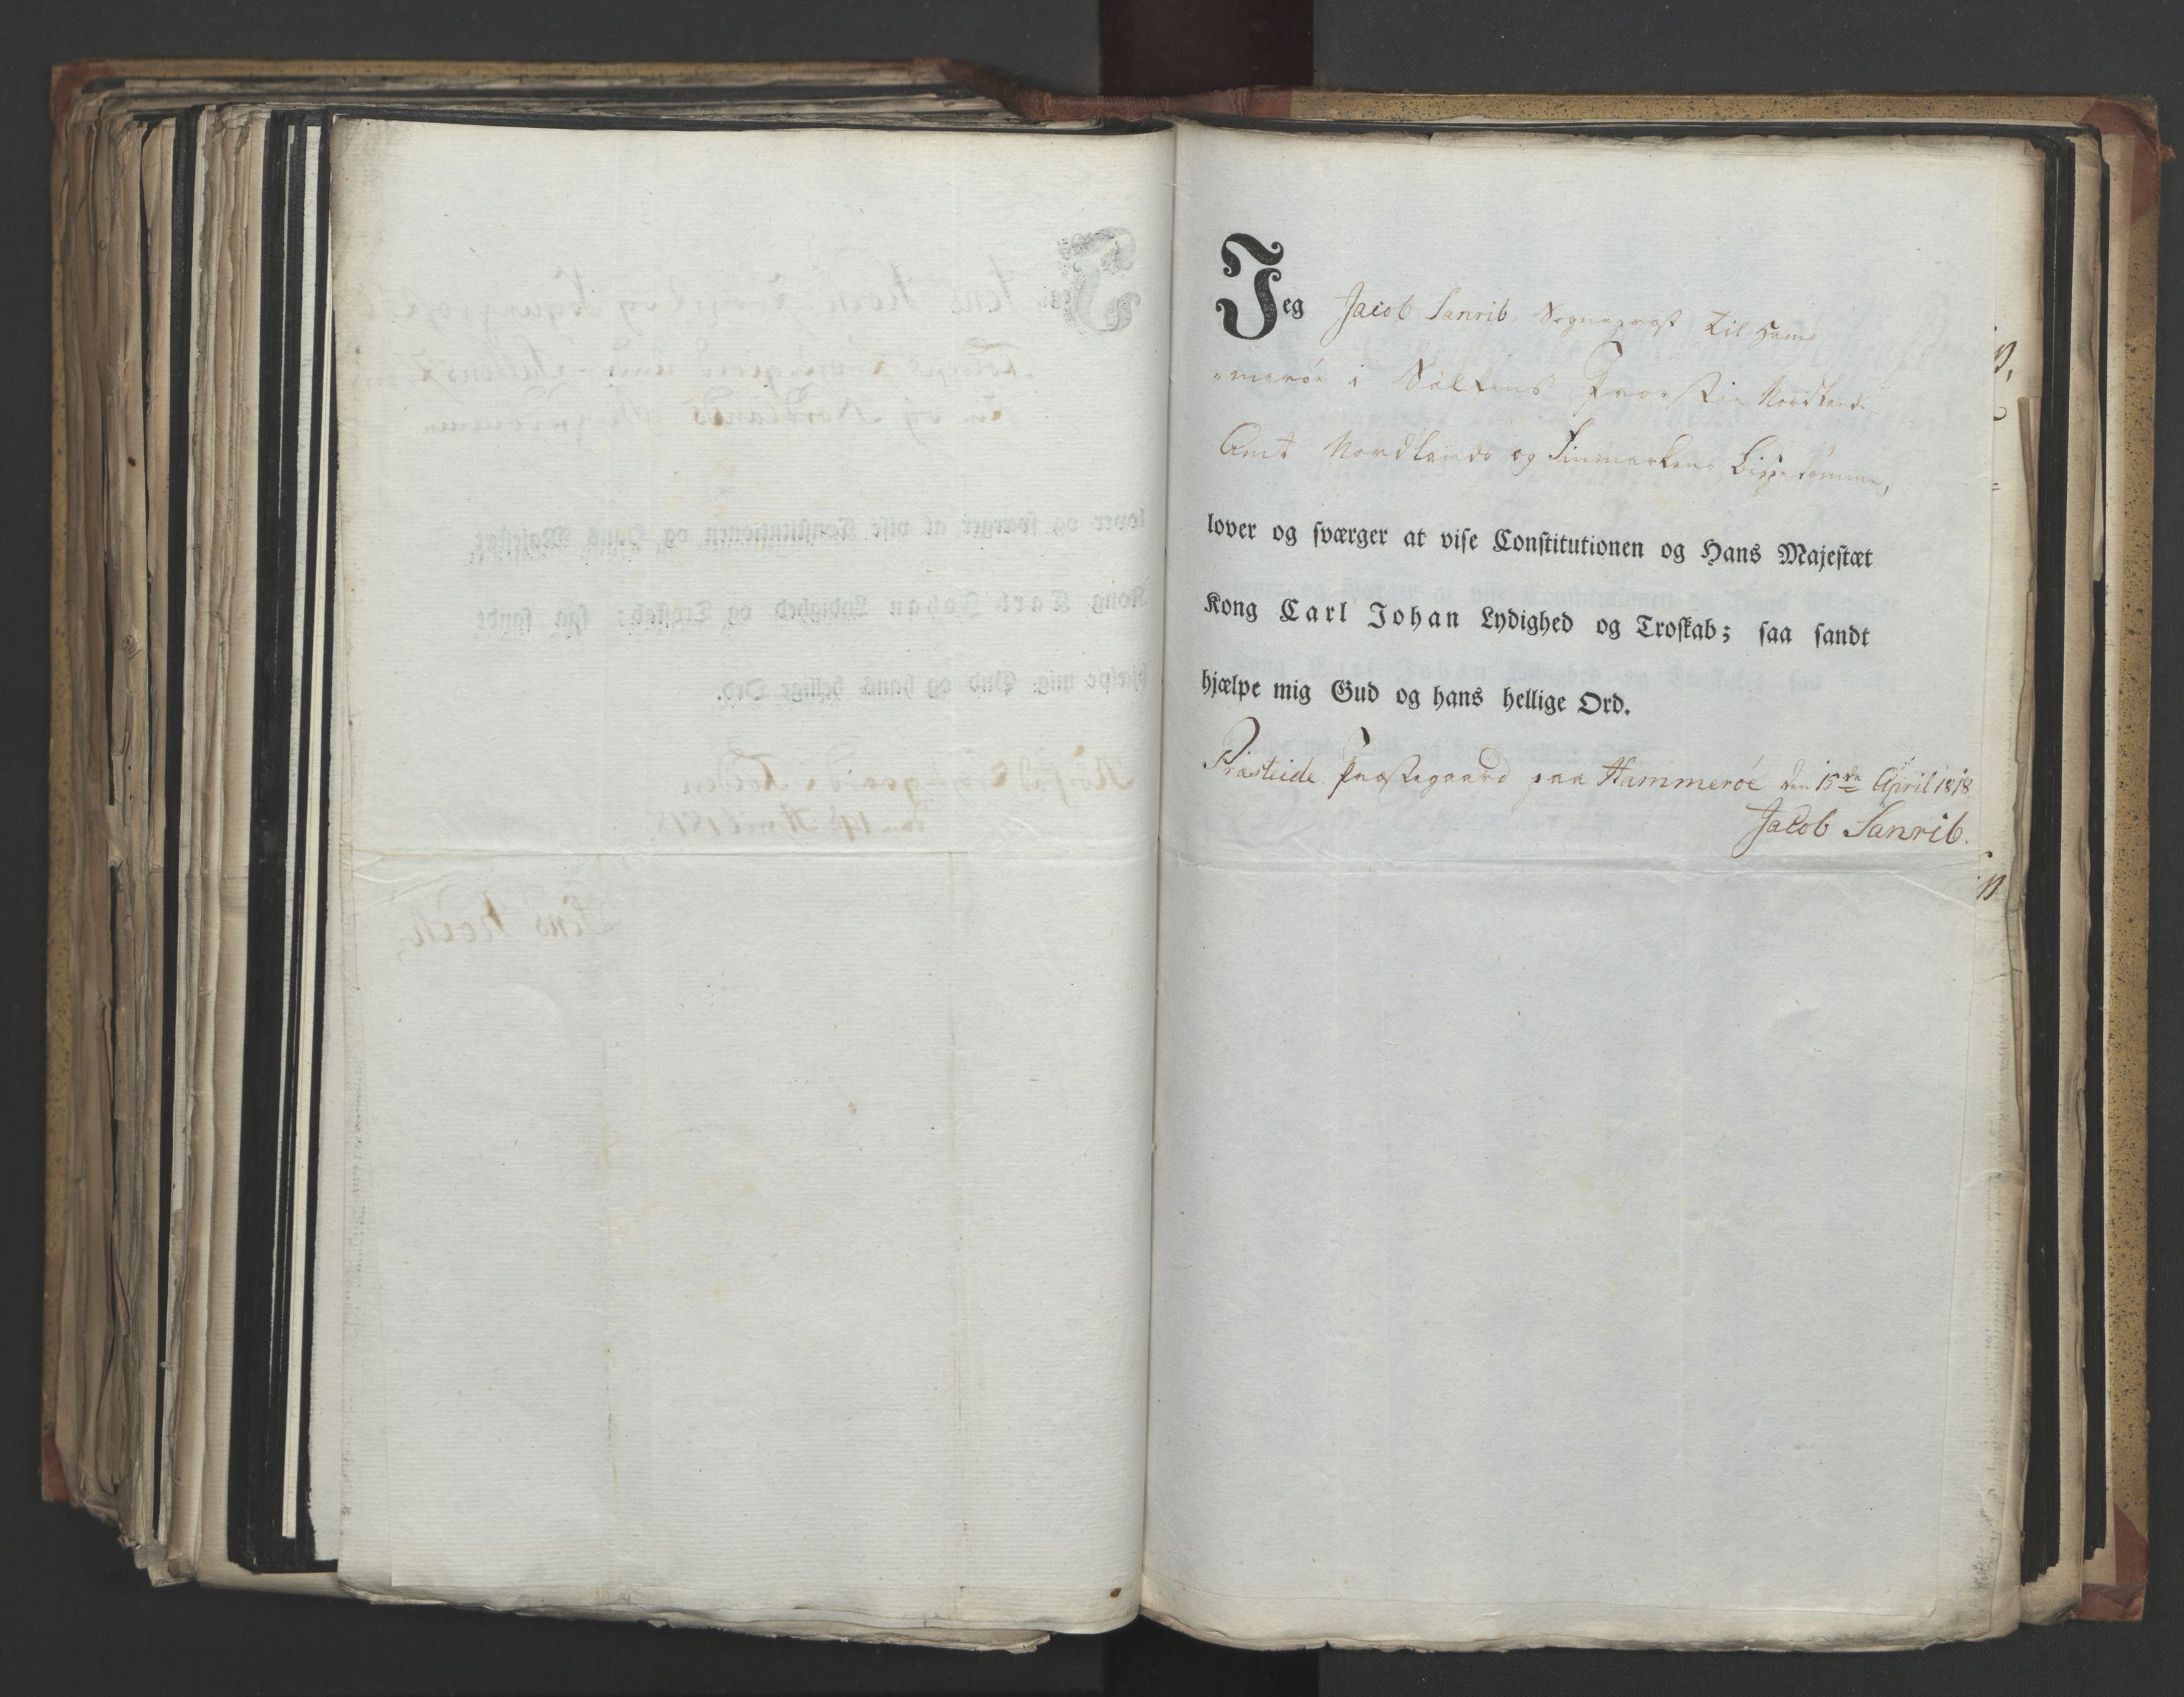 Jeg Jacob Sanrib, Sognepræst til Ham-
"merøe i Saltens Provstie Nordlands
Amt Nordlands og Finmarkens Bispedømme,
lover og sværger at vise Constitutionen og Hans Majestæt
Kong Carl Johan Lydighed og Troskab; saa sandt
hjælpe mig Gud og hans hellige Ord.
Præsteide Præstegaard paa Hammerøe den 15de April 1818
Jacob Sanrib.